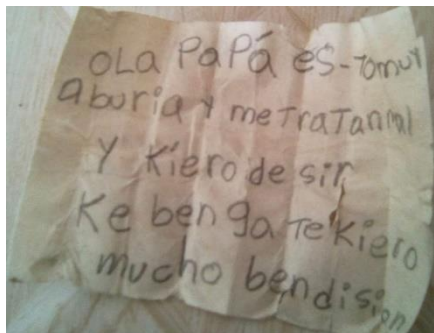 OLa PaPá eS-TOmuY
aburia y meTraTanmal
Y Kiero de sir
Ke benga Te Kiero
mucho bendision